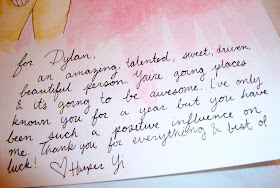 for Dylan,
an amazing, talented, sweet, driven,
beautiful person. You're going places
& it's going to be awesome. I've only
known you for a year but you have
been such a positive influence on
me. Thank you for everything & best of
luck! ♡ Harper Yi